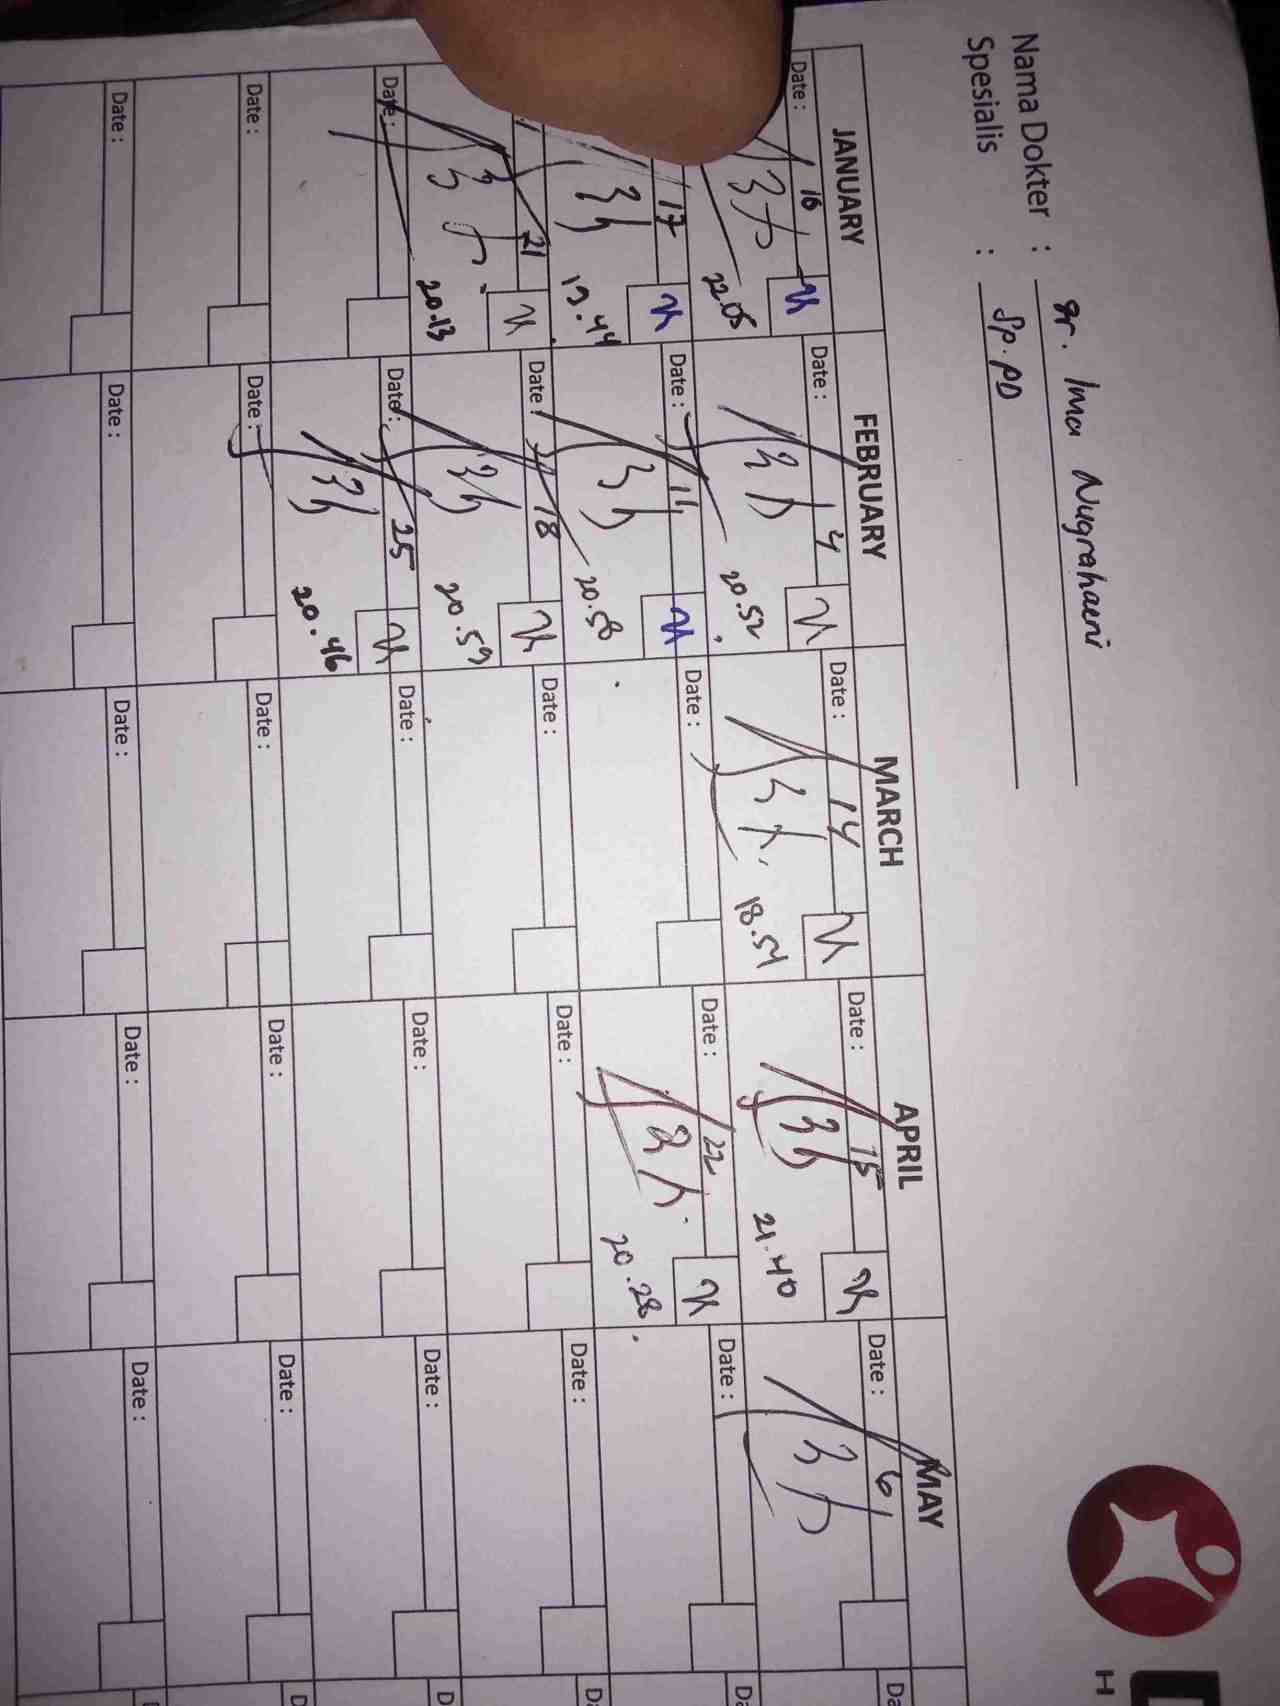 Nama Dokter : dr. Ima Nugrahaeni
Spesialis : Sp.PD
JANUARY FEBRUARY MARCH APRIL MAY
Date : 16 Date : 4 Date : 14 Date : 15 Date : 6
22.05 20.52 18.54 21.40
17 Date : 11 Date : Date : 22 Date :
19.44 20.58 20.28
21 Date : 18 Date : Date : Date :
20.13 20.59
Date : Date : 25 Date : Date : Date :
20.46
Date : Date : Date : Date : Date :
Date : Date : Date : Date : Date :
H